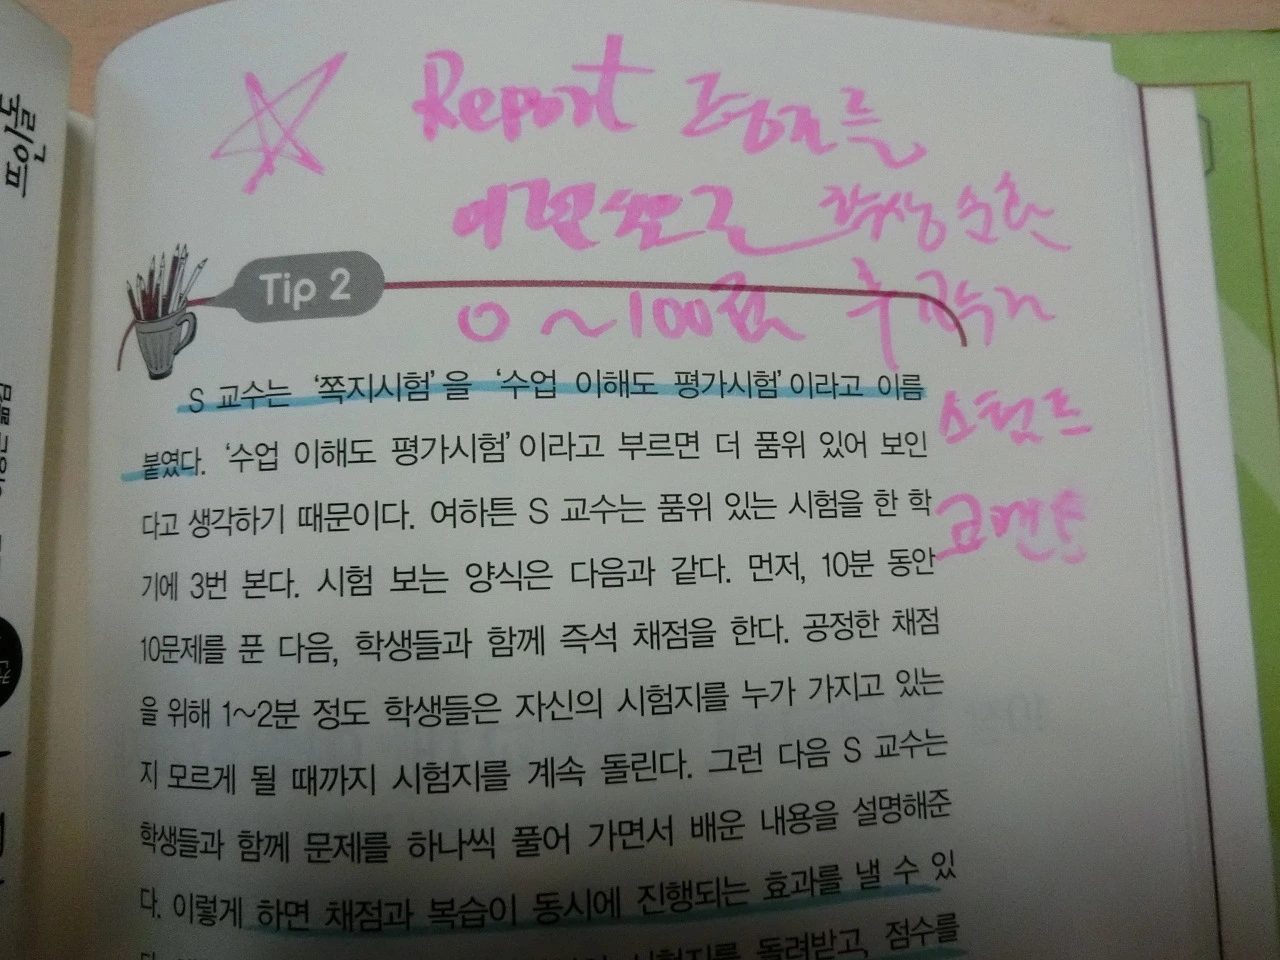 Report 평가를
이런식으로 학생 수준
0 ~ 100점 후 교수가
스탬프
코멘트
Tip 2
S 교수는 '쪽지시험'을 '수업 이해도 평가시험'이라고 이름
붙였다. '수업 이해도 평가시험'이라고 부르면 더 품위 있어 보인
다고 생각하기 때문이다. 여하튼 S 교수는 품위 있는 시험을 한 학
기에 3번 본다. 시험 보는 양식은 다음과 같다. 먼저, 10분 동안
10문제를 푼 다음, 학생들과 함께 즉석 채점을 한다. 공정한 채점
을 위해 1~2분 정도 학생들은 자신의 시험지를 누가 가지고 있는
지 모르게 될 때까지 시험지를 계속 돌린다. 그런 다음 S 교수는
학생들과 함께 문제를 하나씩 풀어 가면서 배운 내용을 설명해준
다. 이렇게 하면 채점과 복습이 동시에 진행되는 효과를 낼 수 있
시험지를 돌려받고, 점수를